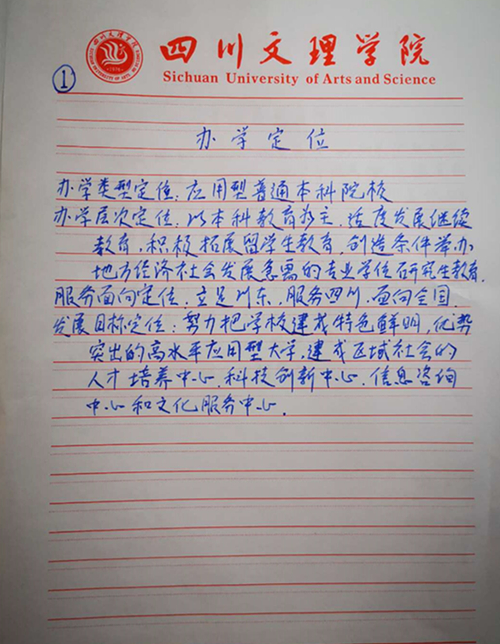 四川文理学院
Sichuan University of Arts and Science
①
办学定位
办学类型定位：应用型普通本科院校
办学层次定位：以本科教育为主，适度发展继续
教育，积极拓展留学生教育，创造条件举办
地方经济社会发展急需的专业学位研究生教育。
服务面向定位：立足川东，服务四川，面向全国。
发展目标定位：努力把学校建成特色鲜明，优势
突出的高水平应用型大学，建成区域社会的
人才培养中心，科技创新中心，信息咨询
中心和文化服务中心。